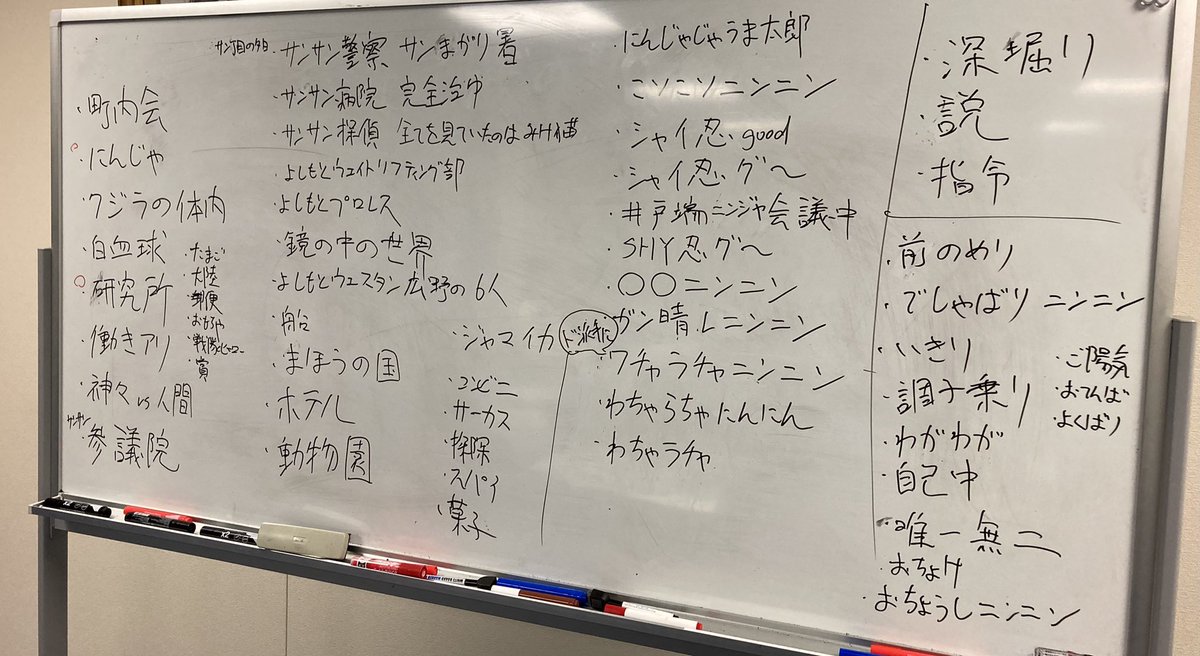 ・町内会
・にんじゃ
・クジラの体内
・白血球
・研究所
・働きアリ
・神々vs人間
サンサン
・参議院
・たまご
・大陸
・郵便
・おもちゃ
・戦隊ヒーロー
・賞
サン丁目の夕日
・サンサン警察 サンまがり署
・サンサン病院 完全治ゆ
・サンサン探偵 全てを見ていたのはみけ猫
・よしもとウエイトリフティング部
・よしもとプロレス
・鏡の中の世界
・よしもとウエスタン 広野の6人
・船
・まほうの国
・ホテル
・動物園
・ジャマイカ
・コンビニ
・サーカス
・探険
・スパイ
・菓子
・にんじゃじゃうま太郎
・こソこソニンニン
・シャイ忍 good
・シャイ忍グ〜
・井戸端ニンジャ会議中
・SHY忍グ〜
・〇〇ニンニン
ド派手に
・ガン晴レニンニン
・ワチャラチャニンニン
・わちゃらちゃにんにん
・わちゃラチャ
・深堀り
・説
・指令
・前のめり
・でしゃばりニンニン
・いきり
・調子乗り
・わがわが
・自己中
・唯一無二
・おちょけ
・おちょうしニンニン
・ご陽気
・おてんば
・よくばり